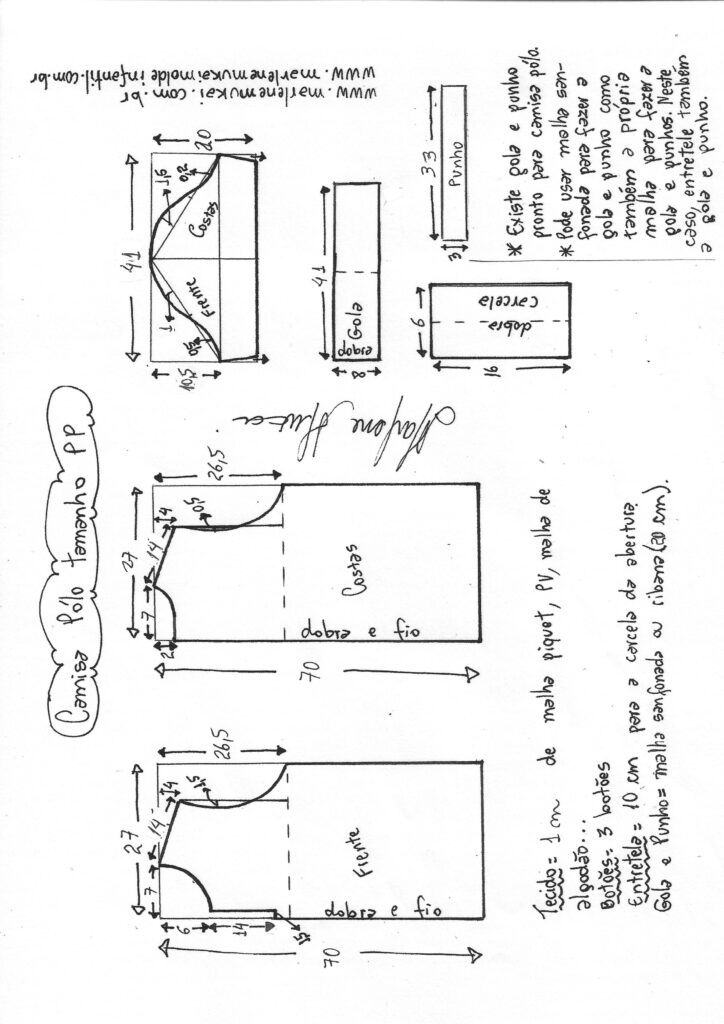 Camisa Pólo tamanho PP
27
14
4
26,5
7
1,5
6
14
1,5
70
Frente
dobra e fio
27
14
4
26,5
7
0,5
2
70
Costas
dobra e fio
Marlene Mukai
41
20
10,5
0,5
1
1,5
0,2
Frente
Costas
41
8
Gola
dobra
6
16
dobra
carcela
33
3
Punho
www.marlenemukai.com.br
www.marlenemukaimoldeinfantil.com.br
* Existe gola e punho
pronto para camisa pólo.
* Pode usar malha san-
fonada para fazer a
gola e punho como
também a própria
malha para fazer a
gola e punhos. Neste
caso, entretele também
a gola e punho.
Tecido = 1 cm de malha piquet, PV, malha de
algodão...
Botões = 3 botões
Entretela = 10 cm para a carcela da abertura
Gola e Punho = malha sanfonada ou ribana (20 cm).